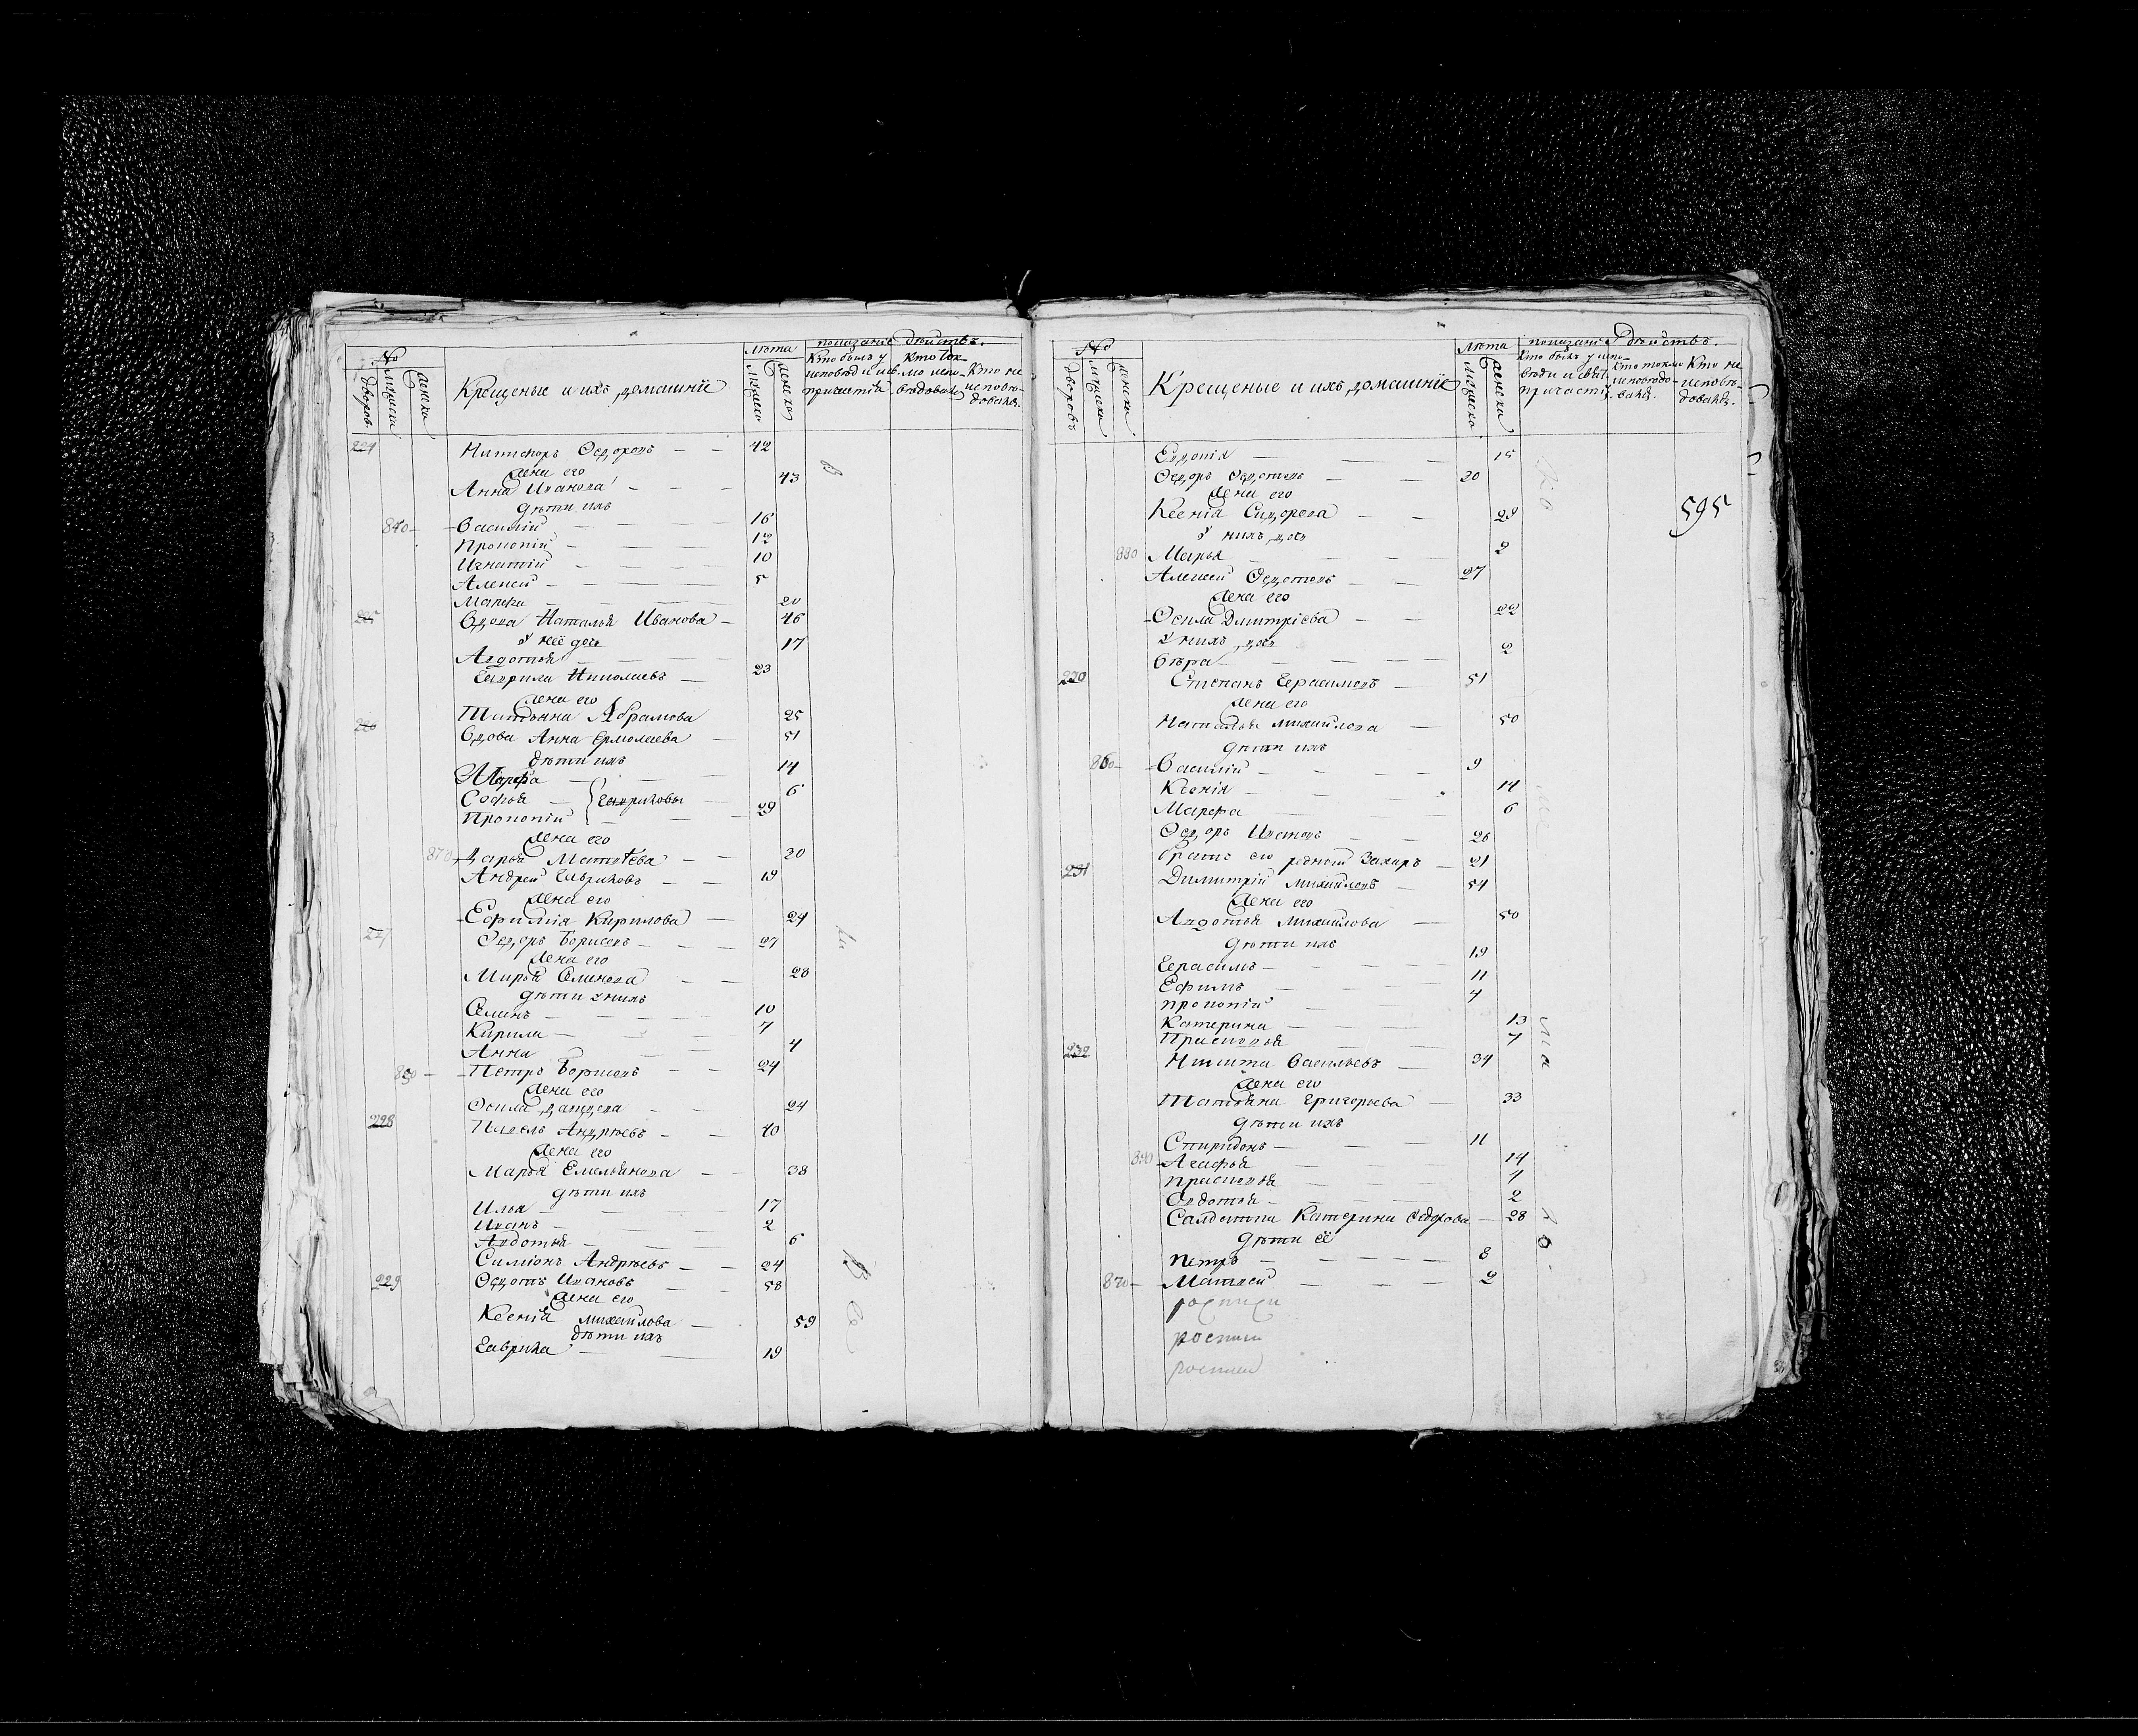 №
дворовъ
мужеска
женска
Крещеные и ихъ домашніе
Лѣта
мужеска
женска
показаніе дѣйствъ.
Кто былъ у исповѣди и св. причастія
Кто токмо исповѣдовал
Кто не исповѣдовалъ.
224 Никифоръ Ѳедоровъ — — 42
жена его
Анна Иванова — — — 43
дѣти ихъ
840 — Василій — — — 16
Прокопій — — — 12
Игнатій — — — 10
Алексей — — — 5
— — — 20
225 Вдова Наталья Иванова — 46
у неё дочь
Авдотья — — — 17
Гаврила Николаевъ — 23
жена его
Татьянна Абрамова 25
226 Вдова Анна Ермолаева — 51
дѣти ихъ
Марфа — — — 14
Софья — Гавриловы — 6
Прокопій — — — 29
жена его
870 Дарья Матвѣева — — 20
Андрей Гавриловъ — — 19
жена его
Ефимія Кирилова — 24
227 Ѳедоръ Борисовъ — — 27
жена его
Марья Семенова — — 28
дѣти у нихъ
Семенъ — — — 10
Кирила — — — 7
Анна — — — 4
850 — Петръ Борисовъ — — 24
жена его
Ѳекла — — 24
228 Андрѣевъ — — 40
жена его
Марья Емельянова — — 38
дѣти ихъ
Илья — — — 17
Иванъ — — — 2
Авдотья — — — 6
Симіонъ Андрѣевъ — — 24
229 Ѳедотъ Ивановъ — — 58
жена его
Ксенія Михайлова — 59
дѣти ихъ
Гаврила — — 19
№
дворовъ
мужеска
женска
Крещеные и ихъ домашніе
Лѣта
мужеска
женска
показаніе дѣйствъ.
Кто былъ у исповѣди и свят. причастія
Кто токмо исповѣдовалъ.
Кто не исповѣдовалъ.
595
— — — 15
Ѳедоръ Ѳедотовъ — — 20
жена его
Ксенія Сидорова — — 29
у нихъ дочь
880 Марья — — — 2
Алексей Ѳедотовъ — — 27
жена его
Ѳекла Дмитріева — — 22
у нихъ дочь
Вѣра — — — 2
230 Степанъ Герасимовъ — 51
жена его
Наталья Михайлова — 50
дѣти ихъ
860 — Василій — — — 9
Ксенія — — — 14
Марфа — — — 6
Ѳедоръ Ивановъ — — 26
братъ его родной Захаръ — 21
231 Димитрій Михайловъ — 54
жена его
Авдотья Михайлова — 50
дѣти ихъ
Герасимъ — — — 19
Ефимъ — — — 11
Прокопій — — 4
Катерина — — — 13
Прасковья — — 7
232 Никита Васильевъ — 34
жена его
Татьяна Григорьева — 33
дѣти ихъ
Спиридонъ — — — 11
890 Агафья — — — 14
Прасковья — — — 4
Овдотья — — — 2
Салдатка Катерина Ѳедорова — 28
дѣти её
Петръ — — — 8
870 — Матвей — — — 2
росписи
росписи
росписи